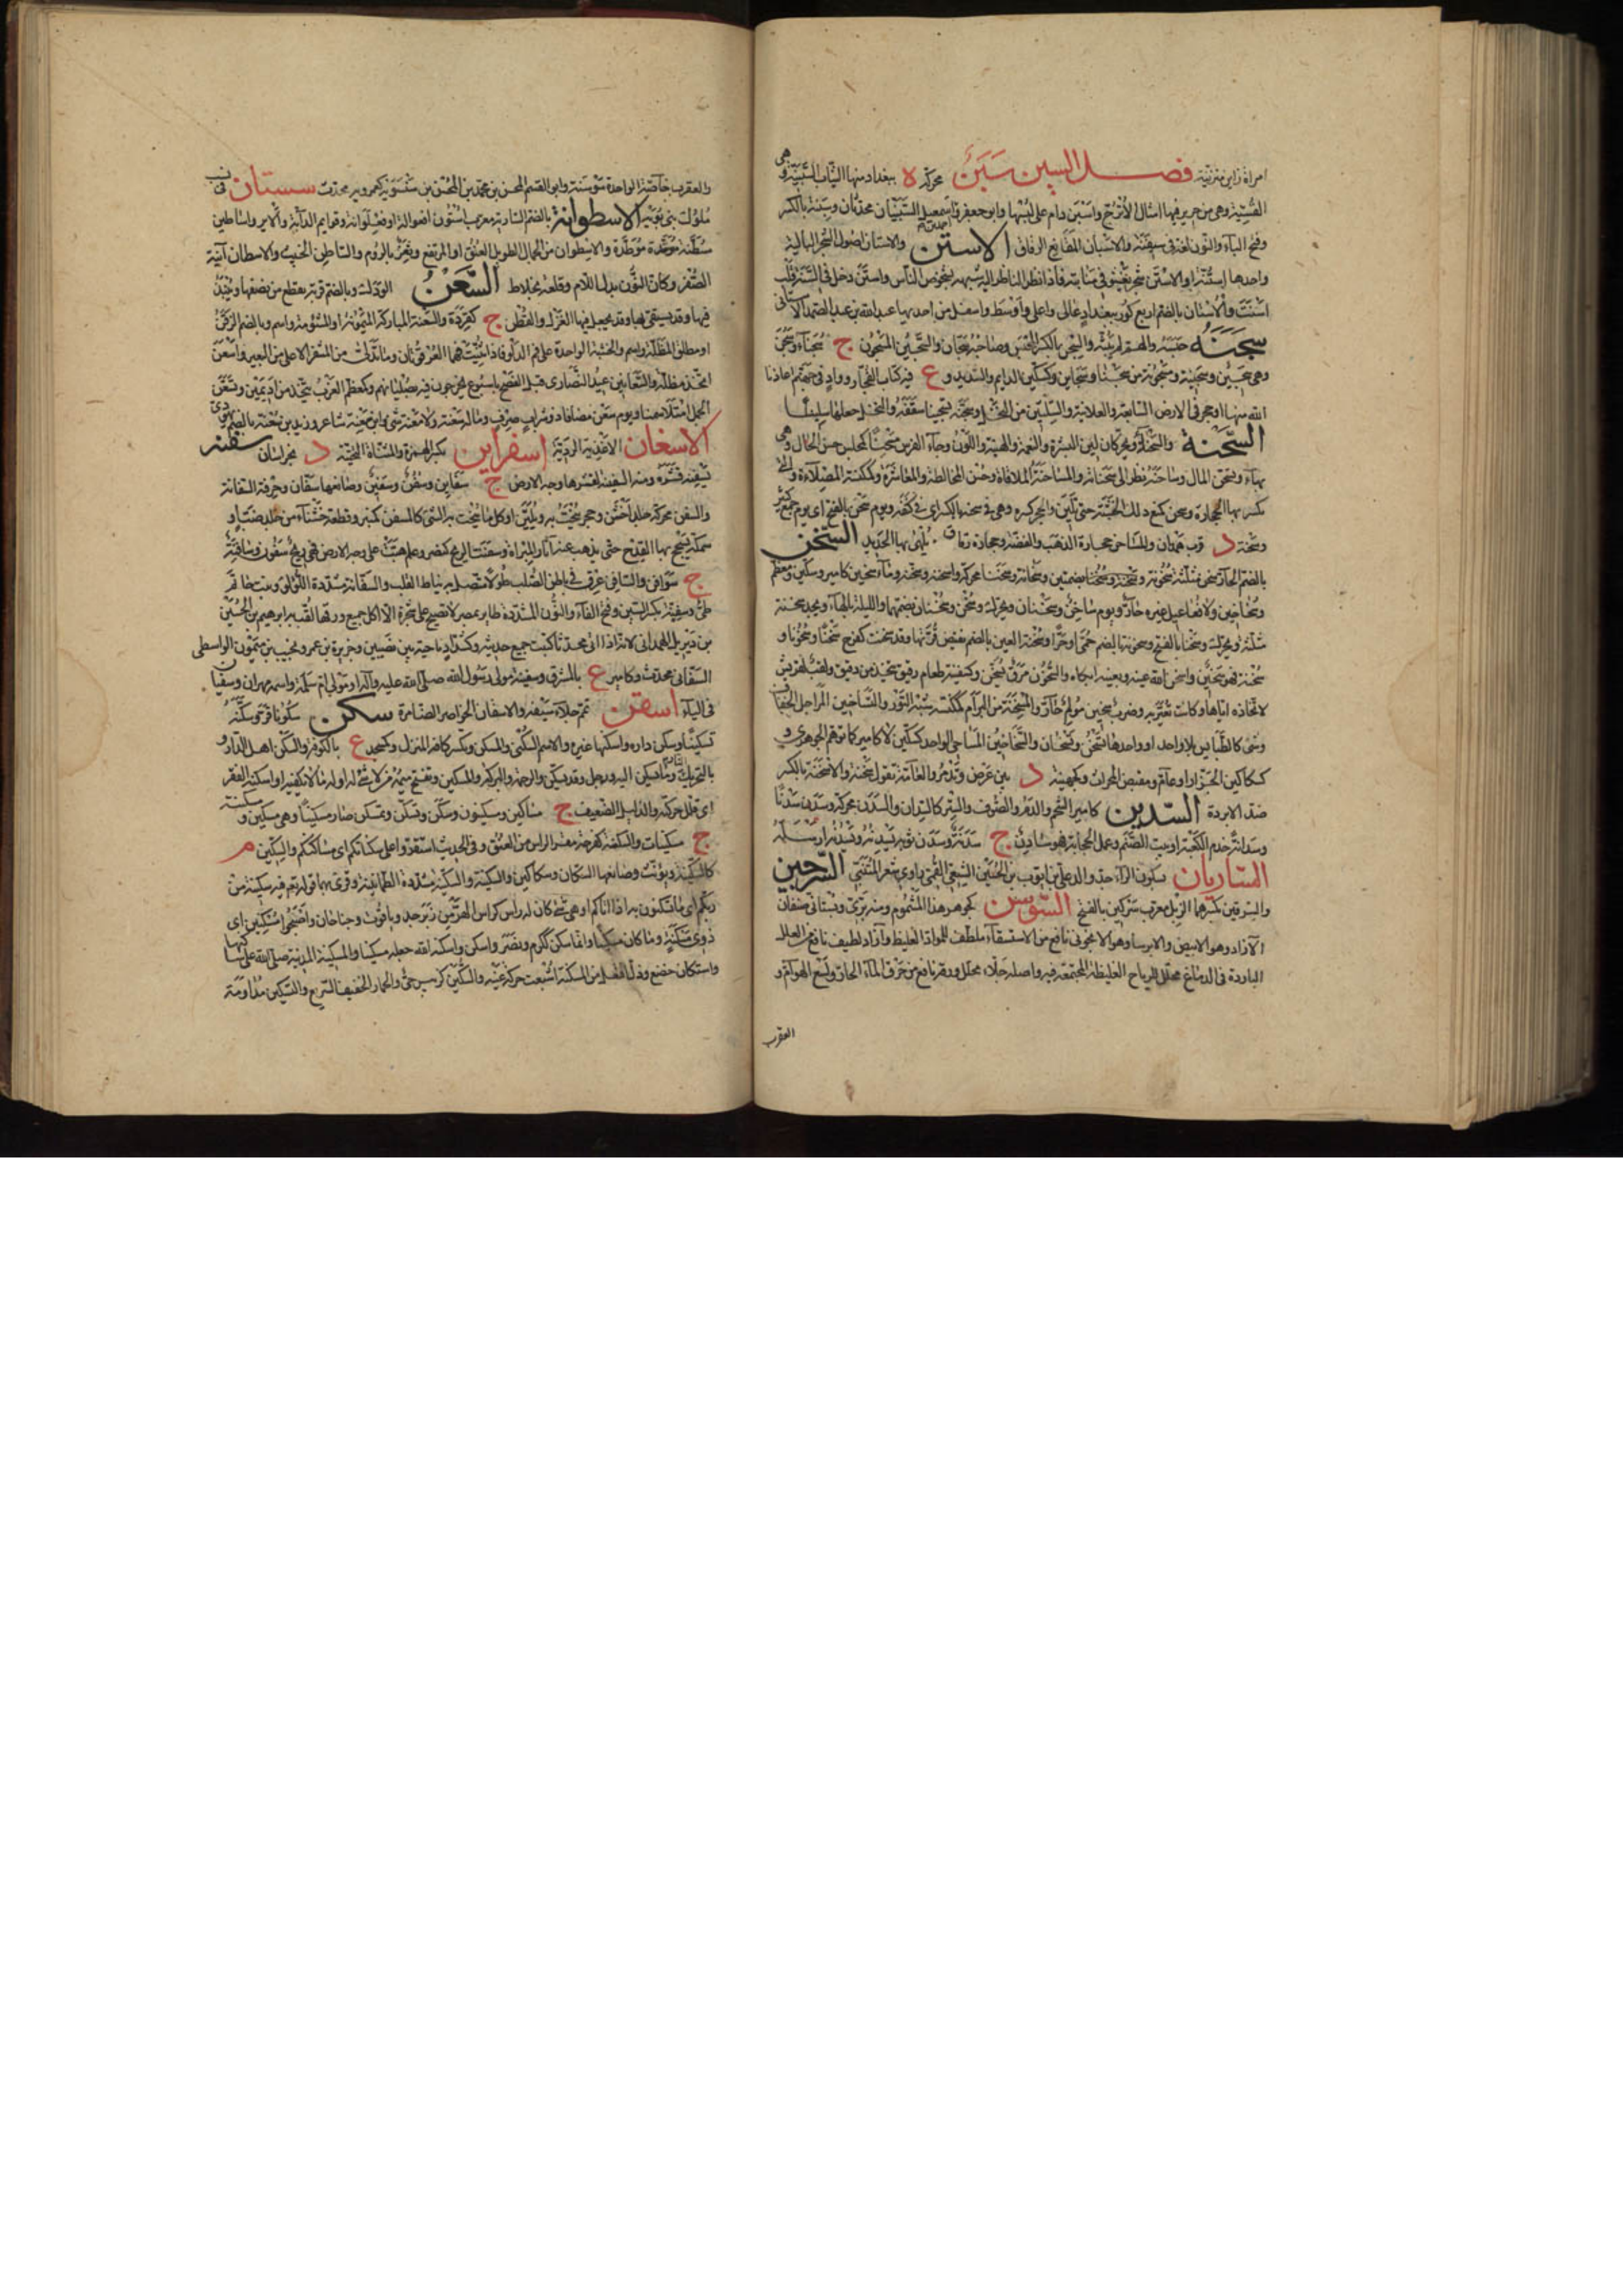 امراة زاني مزنية فصل السين سبن محركة ه ببغداد منها الثياب السبنية وهي
القسية وهي من حرير فيها امثال الأترج واسبن دام على لبسها وابو جعفر واسمعيل السبنيان محدثان وسبنة بالكسر
وفتح الباء والنون لغة في سيفنة والاسبان المقانع الرقاق الاستن والاستان اصول الشجر البالية
واحدها استنة او الاستن شجر يفشو في منابته فاذا نظر الناظر اليه شبهه بشخوص الناس واستن دخل في السنة قلب
اسنت والاستان بالضم اربع كور ببغداد عالى واعلى واوسط واسفل من احدها عبد الله بن عبد الصمد الاستاني
سجنه حبسه والهم لم يبثه والسجن بالكسر المحبس وصاحبه سجان والسجين المسجون ج سجناء وسجنى
وهي سجين وسجينة ومسجونة من سجنى وسجاين وكسكين الدايم والشديد و ع فيه كتاب الفجار وواد في جهنم اعاذنا
الله منها او حجر في الارض السابعة والعلانية والسلتين من النخل وسجنه تسجينا شققه والنخل جعلها سلتينا
السحنة والسحناء ويحركان لين البشرة والنعمة والهيئة واللون وجاء الفرس مسحنا كمحسن حسن الحال وهي
بهاء وتسحن المال وساحنه نظر الى سحنائه والمساحنة الملاقاة وحسن المخالطة والمعاشرة وكمكنسة الصلاءة والتي
تكسر بها الحجارة وسحن كمنع دلك الخشبة حتى تلين والحجر كسره وهي في سحنه بالكسر اي في كنفه ويوم سحن بالفتح اي يوم جمع كثير
وسحنة د قرب همدان والمساحن حجارة الذهب والفضة وحجارة رقاق يمهى بها الحديد السخن
بالضم الحار سخن مثلثة سخونة وسخنة وسخنا بضمتين وسخانة وسخنا محركة واسخنه وسخنه وماء سخين كامير وسكين ومعظم
وسخاخين ولا فعاعيل غيره حار ويوم ساخن وسخنان ويحرك وسخن وسخنان بضمهما والليلة بالهاء ويجد سخنة
مثلثة ويحرك وسخنا بالفتح وسخونة بالضم حمى او حرا وسخنة العين بالضم نقيض قرتها وقد سخنت كفرح سخنا وسخونا و
سخنة فهو سخين واسخن الله عينه وبعينه ابكاه والسخون مرق يسخن وكسفينة طعام رقيق يتخذ من دقيق ولقب لقريش
لاتخاذها اياها وكانت تعير به وضرب سخين مؤلم حار والمسخنة من البرام كمكنسة شبه التور والتساخين المراجل والخفاف
وشيء كالطيالس بلا واحد او واحدها تسخن وتسخان والسخاخين المساحي الواحد كسكين لا كامير كما توهم الجوهري و
كسكاكين الجزار او عام ومقبض المحراث وكجهينة د بين عرض وتدمر والعامة تقول سخنة والاسخنة بالكسر
ضد الابردة السدين كامير الشحم والدم والصوف والستر كالسدان والسدن محركة وسدن سدنا
وسدانة خدم الكعبة او بيت الصنم وعمل الحجابة فهو سادن ج سدنة وسدن ثوبه يسدنه ويسدنه ارسله
الساريان بسكون الراء جد والد علي بن ايوب بن الحسين الشيعي القمي راوي شعر المتنبي السرجين
والسرقين بكسرهما الزبل معرب سركين بالفتح السوسن كجوهر هذا المشموم ومنه بري وبستاني صنفان
الآزاد وهو الابيض والايرسا وهو الاسمانجوني نافع من الاستسقاء ملطف للمواد الغليظة وآزاد لطيف نافع من العلل
الباردة في الدماغ محلل للرياح الغليظة المجتمعة فيه واصله جلاء محلل وورقه نافع من حرق الماء الحار ولسع الهوام و
العقرب
والعقرب خاصة الواحدة سوسنة وابو القسم المحسن بن محمد بن المحسن بن سسويه كعمرويه محدث سستان في نسب
ملوك بني بويه الاسطوانة بالضم السارية معرب استون افعوالة او فعلوانة وقوايم الدابة والاير واساطين
مسطنة موطدة والاسطوان من الجمال الطويل العنق او المرتفع وثغر بالروم والساطن الخبيث والاسطان آنية
الصفر وكان النون بدل اللام وقلعة بخلاط السعن الودك وبالضم قربة تقطع من نصفها وينبذ
فيها وقد يستقى بها وقد يجعل فيها الغزل والقطن ج كقردة والسعنة المباركة الميمونة او المشؤومة واسم وبالضم الركن
او مطلق المظلة واسم والخشبة الواحدة على فم الدلو فاذا ثنيت فهما العرقوتان وما تدلى من المشفر الاعلى من البعير واسعن
اتخذ مظلة والسعانين عيد النصارى قبل الفصح باسبوع يخرجون فيه بصلبانهم وكمعظم الغرب يتخذ من اديمين وتسعن
الجمل امتلاء سمنا ويوم سعن مضافا ذو شراب صرف وماله سعنة ولا معنة شيء وابن سعنة شاعر وزيد بن سعنة بالفتح يهودي
الاسغان الاغذية الردية اسفراين بكسر الهمزة والمثناة التحتية د بخراسان سفنه
يسفنه قشره ومنه السفينة لقشرها وجه الارض ج سفاين وسفن وسفين وصانعها سفان وحرفته السفانة
والسفن محركة جلد اخشن وحجر ينحت به ويلين او كل ما ينحت به الشيء كالمسفن كمنبر وقطعة خشناء من جلد ضب او
سمكة يسحج بها القدح حتى يذهب عنه آثار المبراة وسفنت الريح كنصر وعلم هبت على وجه الارض فهي ريح سفون وسافنة
ج سوافن والسافن عرق في باطن الصلب طولا متصل به نياط القلب والسفانة مشددة اللؤلؤة وبنت حاتم
طي وسفينة بكسر السين وفتح الفاء والنون المشددة طاير بمصر لا تقع على شجرة الا اكل جميع ورقها لقب به ابرهيم بن الحسين
بن ديزيل الهمداني لانه اذا اتى محدثا كتب جميع حديثه وكشداد ناحية بين نصيبين وجزيرة بن عمر ونجيب بن ميمون الواسطي
السفاني محدث وكامير ع بالشرق وسفينة مولى رسول الله صلى الله عليه وآله او مولى ام سلمة واسمه مهران وسفيان
في الياء اسقن تمم جلاء سيفه والاسقان الخواصر الضامرة سكن سكونا قر وسكنه
تسكينا وسكن داره واسكنها غيره والاسم السكنى والمسكن وتكسر كافه المنزل وكمسجد ع بالكوفة والسكن اهل الدار و
بالتحريك النار وما يسكن اليه ورجل وقد يسكن والرحمة والبركة والمسكين وتفتح ميمه من لا شيء له او له ما لا يكفيه او اسكنه الفقر
اي قلل حركته والذليل الضعيف ج مساكين ومسكينون وسكن وتسكن وتمسكن صار مسكينا وهي مسكين ومسكينة
ج مسكينات والسكنة كفرحة مقر الراس من العنق وفي الحديث استقروا على سكناتكم اي مساكنكم والسكين م
كالسكينة ويؤنث وصانعها السكان وسكاكين والسكينة والسكينة مشددة الطمانينة وقرئ بهما قوله تعم فيه سكينة من
ربكم اي ما تسكنون به اذا اتاكم او هي شيء كان له راس كراس الهر من زبرجد وياقوت وجناحان واصبحوا مسكنين اي
ذوي مسكنة وما كان مسكينا وانما سكن ككرم ونصر واسكن واسكنه الله جعله مسكينا والمسكينة المدينة صلى الله على ساكنها
واستكان خضع وذل افتعل من المسكنة اشبعت حركة عينه والسكين كزبير حي والحمار الخفيف السريع والتسكين مداومة